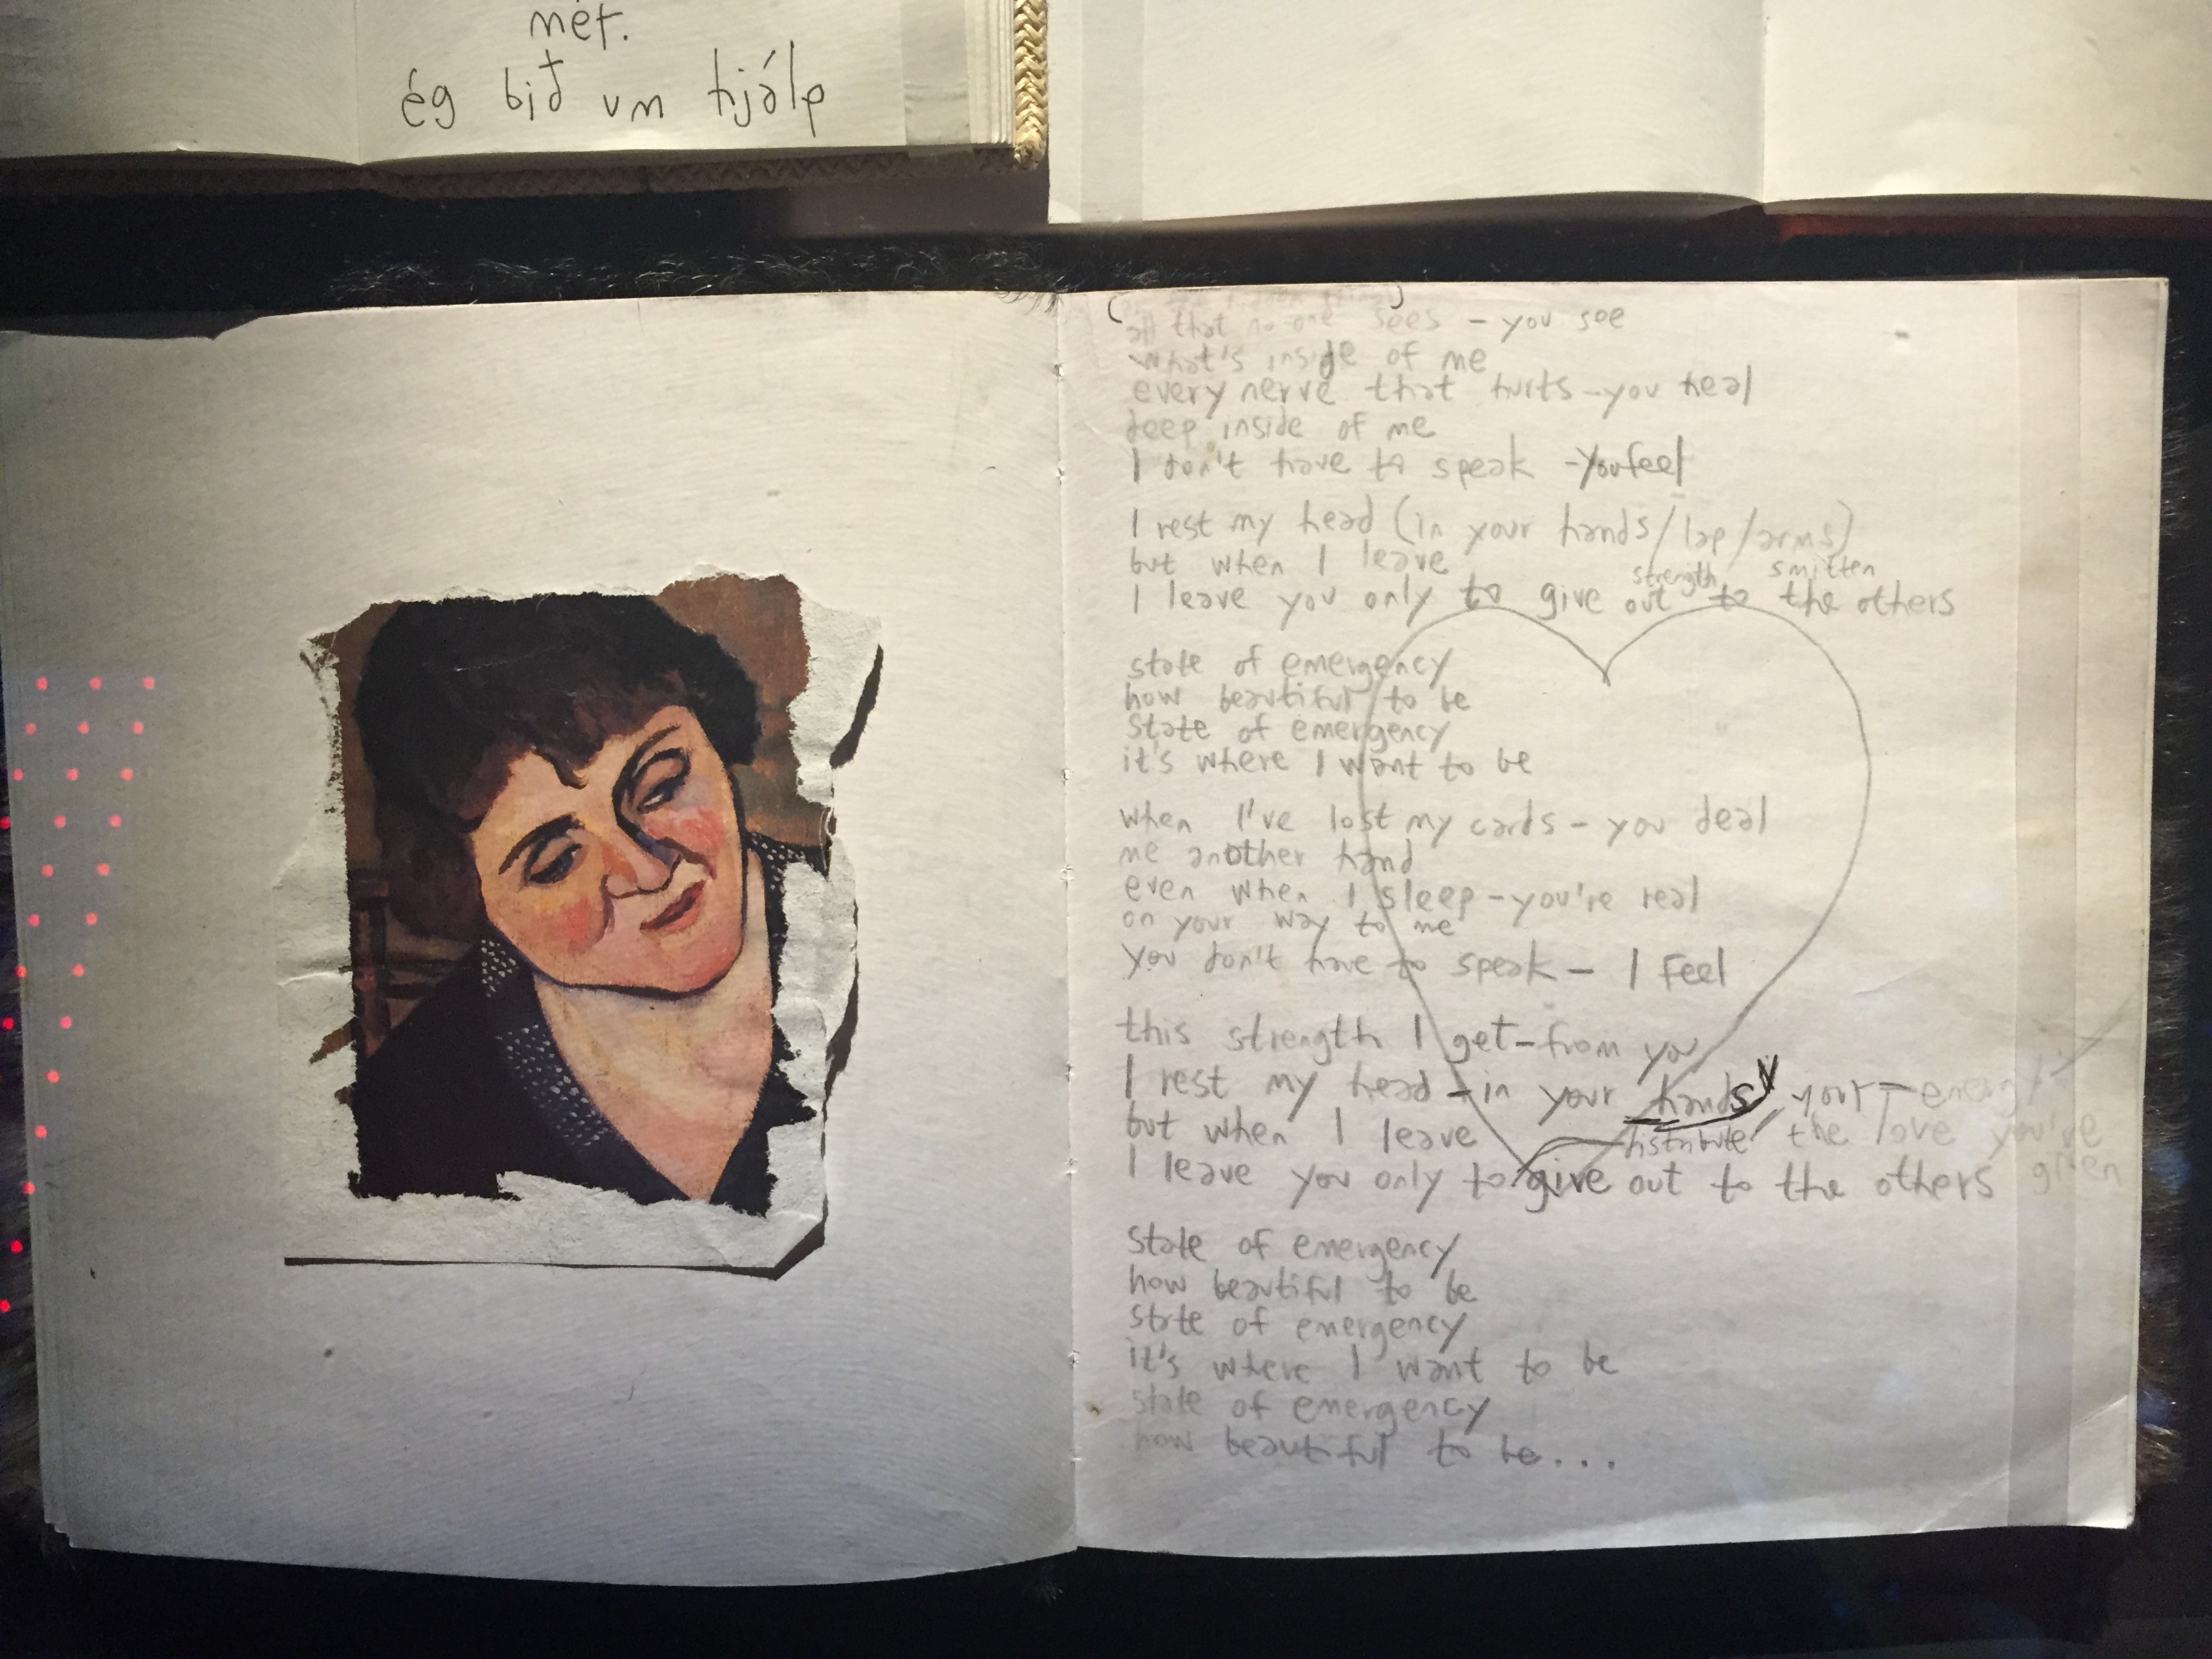 mét.
ég bið um hjálp
all that no one sees - you see
what's inside of me
every nerve that hurts - you heal
deep inside of me
I don't have to speak - you feel
I rest my head (in your hands/lap/arms)
but when I leave
strength smitten
I leave you only to give out to the others
state of emergency
how beautiful to be
state of emergency
it's where I want to be
when I've lost my cards - you deal
me another hand
even when I sleep - you're real
on your way to me
you don't have to speak - I feel
this strength I get - from you
I rest my head - in your hands your energy
but when I leave distribute the love you've
I leave you only to give out to the others given
state of emergency
how beautiful to be
state of emergency
it's where I want to be
state of emergency
how beautiful to be...